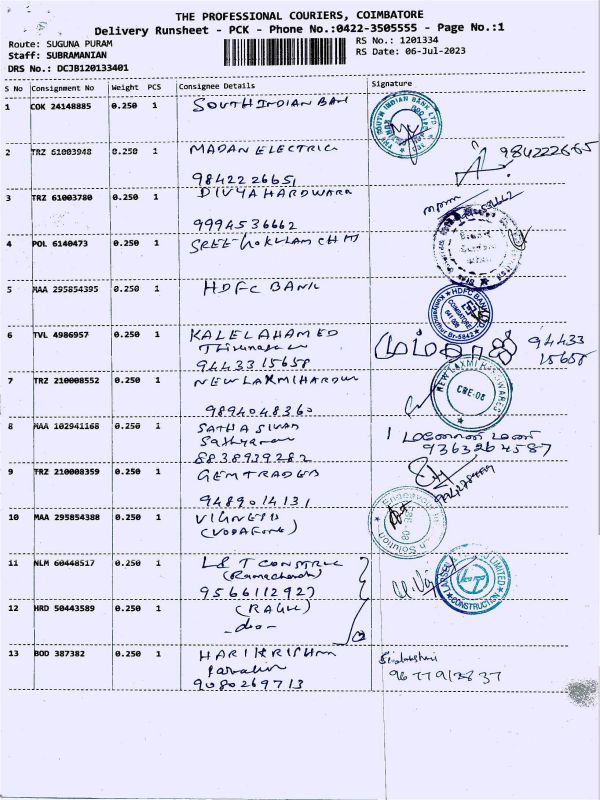 THE PROFESSIONAL COURIERS, COIMBATORE
Delivery Runsheet - PCK - Phone No.:0422-3505555 - Page No.:1
Route: SUGUNA PURAM RS No.: 1201334
Staff: SUBRAMANIAN RS Date: 06-Jul-2023
DRS No.: DCJB120133401
S No Consignment No Weight PCS Consignee Details Signature
1 COK 24148885 0.250 1 SOUTH INDIAN BAN
THE SOUTH INDIAN BANK LTD
2 TRZ 61003948 0.250 1 MADAN ELECTRIC
9842226651
3 TRZ 61003780 0.250 1 DIVYA HARDWARA
9994536662
4 POL 6140473 0.250 1 SREE GOKULAM CHIT
5 MAA 295854395 0.250 1 HDFC BANK
HDFC BANK
6 TVL 4986957 0.250 1 KALEL AHAMED
9443315658 94433 15658
7 TRZ 210008552 0.250 1 NEW LAXMI HARDW
NEW LAXMI HARDWARES
CBE-08
9894048360
8 MAA 102941168 0.250 1 SATHA SIVAN
8838939282 9363264587
9 TRZ 210008359 0.250 1 GEM TRADED
9489014131
10 MAA 295854388 0.250 1 VIGNESH
(VODAFONE)
11 NLM 60448517 0.250 1 L&T CONSTRUC
(Ramachandr)
9566112927
LARSEN & TOUBRO LIMITED
CONSTRUCTION
12 HRD 50443589 0.250 1 (RAGU)
-do-
13 BOD 387382 0.250 1 HARIKRISHN
9080269713